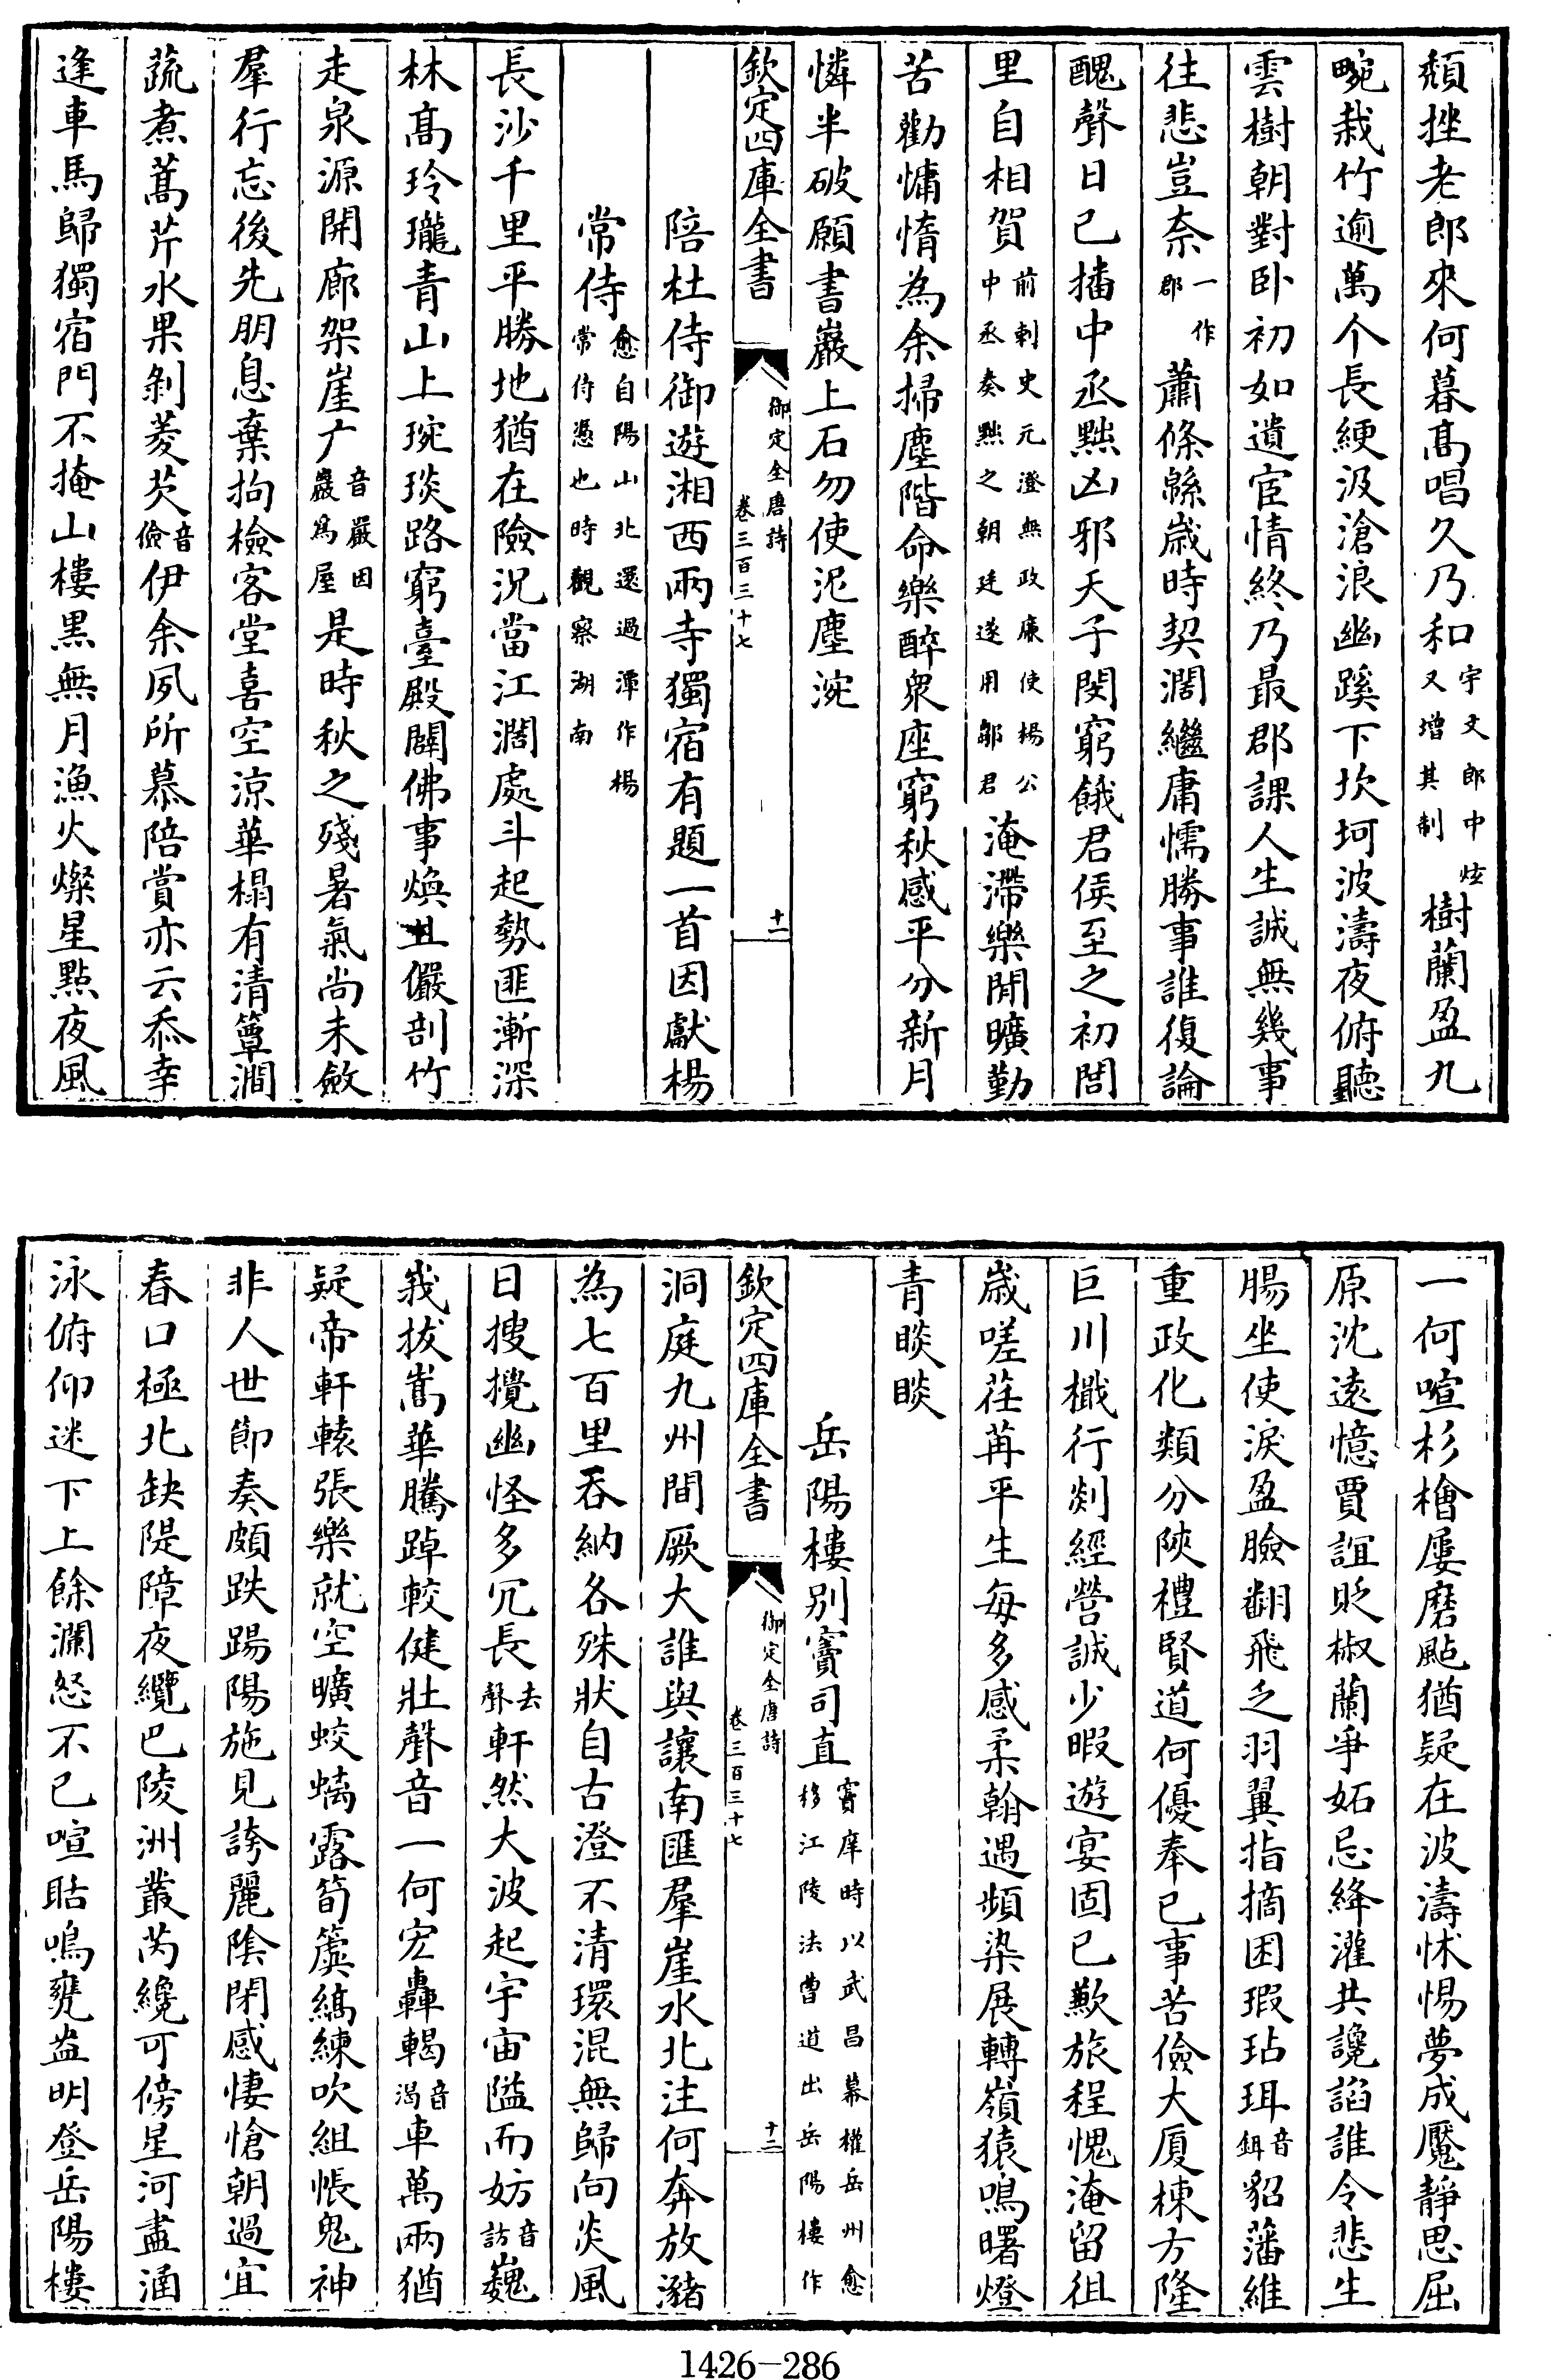 頽挫老郎來何暮髙唱久乃和宇文郎中炫又增其制樹蘭盈九
畹栽竹逾萬个長綆汲滄浪幽蹊下坎坷波濤夜俯聽
雲樹朝對卧初如遺宦情終乃最郡課人生誠無幾事
往悲豈奈一作郡蕭條緜嵗時契濶繼庸懦勝事誰復論
醜聲日已播中丞黜凶邪天子閔窮餓君侯至之初閭
里自相賀前刺史元澄無政廉使楊公中丞奏黜之朝廷遂用鄒君淹滯樂閒曠勤
苦勸慵惰為余掃塵階命樂醉衆座窮秋感平分新月
憐半破願書巖上石勿使泥塵涴
欽定四庫全書
御定全唐詩
卷三百三十七
十一
陪杜侍御遊湘西兩寺獨宿有題一首因獻楊
常侍愈自陽山北還過潭作楊常侍憑也時觀察湖南
長沙千里平勝地猶在險況當江濶處斗起勢匪漸深
林髙玲瓏青山上琬琰路窮臺殿闢佛事煥且儼剖竹
走泉源開廊架崖广音嚴因巖為屋是時秋之殘暑氣尚未斂
羣行忘後先朋息棄拘檢客堂喜空涼華榻有清簟澗
蔬煮蒿芹水果剝菱芡音儉伊余夙所慕陪賞亦云忝幸
逢車馬歸獨宿門不掩山樓黒無月漁火燦星點夜風
一何喧杉檜屢磨颭猶疑在波濤怵惕夢成魘靜思屈
原沈逺憶賈誼貶椒蘭爭妬忌絳灌共讒諂誰令悲生
腸坐使淚盈臉翻飛乏羽翼指摘困瑕玷珥音鉺貂藩維
重政化類分陜禮賢道何優奉已事苦儉大厦棟方隆
巨川檝行剡經營誠少暇遊宴固已歉旅程愧淹留徂
嵗嗟荏苒平生每多感柔翰遇頻染展轉嶺猿鳴曙燈
青睒睒
岳陽樓别竇司直竇庠時以武昌幕權岳州愈移江陵法曹道出岳陽樓作
欽定四庫全書
御定全唐詩
卷三百三十七
十二
洞庭九州間厥大誰與讓南匯羣崖水北注何奔放瀦
為七百里吞納各殊狀自古澄不清環混無歸向炎風
日搜攪幽怪多冗長去聲軒然大波起宇宙隘而妨音訪巍
峩拔嵩華騰踔較健壯聲音一何宏轟輵音渴車萬兩猶
疑帝軒轅張樂就空曠蛟螭露筍簴縞練吹組帳鬼神
非人世節奏頗跌踼陽施見誇麗隂閉感悽愴朝過宜
春口極北缺隄障夜纜巴陵洲叢芮纔可傍星河盡涵
泳俯仰迷下上餘瀾怒不已喧聒鳴甕盎明登岳陽樓
1426-286